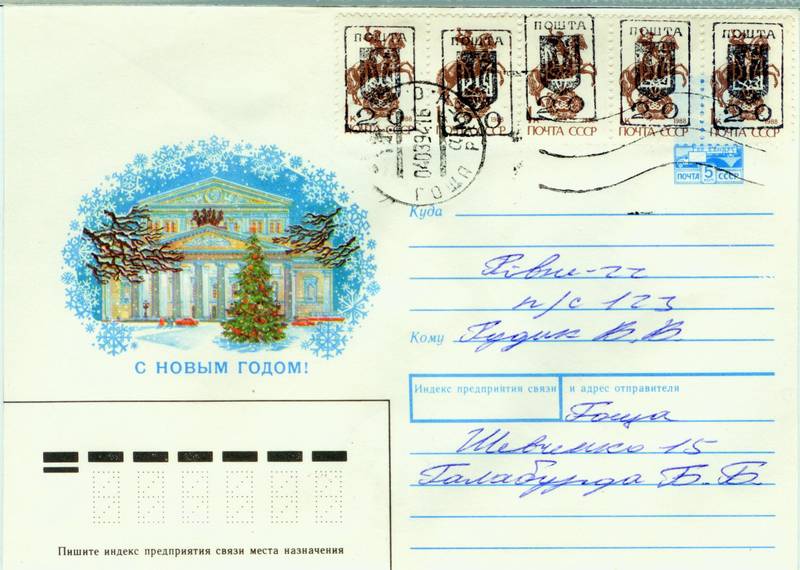 ПОШТА ПОШТА ПОШТА ПОШТА ПОШТА
20 20 20 20 20
1988 1988 1988 1988 1988
ПОЧТА СССР ПОЧТА СССР ПОЧТА СССР ПОЧТА СССР ПОЧТА СССР
ГОЩА
ПОЧТА 5 СССР
Куда
Рівне-22
п/с 123
Кому Рудик В.В.
С НОВЫМ ГОДОМ!
Индекс предприятия связи и адрес отправителя
Гоща
Шевченко 15
Галабурда Б.Б.
Пишите индекс предприятия связи места назначения